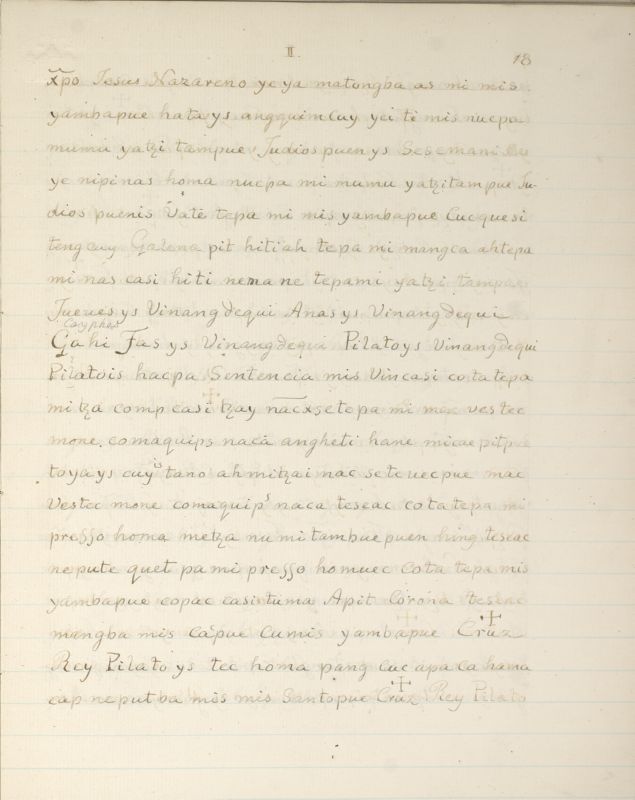 II.
18
x̃po Jesus Nazareno ye ya matongba as mi mis
yambapue hata ys angquimcuy yei te mis nucpa
mumu yatzi tampue Judios puen ys Sesemani
ye nipinas homa nucpa mi mumu yatzitampue Ju-
dios puenis Vate tepa mi mis yambapue Cucquesi
teng cuy Galena pit hitiah tepa mi mangca ahtepa
mi nas casi hiti nemane tepami yatzi tampue
Jueves ys Vinangdequi Anas ys Vinangdequi
Cayphas
Gahi Fas ys Vinangdequi Pilatoys Vinangdequi
Pilatois hacpa Sentencia mis Vincasi cotatepa
mitza comp casi tzay nacxsetepa mi mac vestec
mone comaquips naca angheti hane micaepitp
toyays cuy tano ahmitzai nac setevecpue mac
Vestec mone comaquips naca teseac cotatepa mi
presso homa metza numitambue puen hing teseac
nepute quet pami presso homuec Cota tepa mis
yambapue copac casi tuma Apit Corona teseac
mangba mis capue Cumis yambapue Cruz
Rey Pilato ys tec homa pang cuc apa ca hamu
cap neputba mis mis Santopue Cruz Rey Pilato